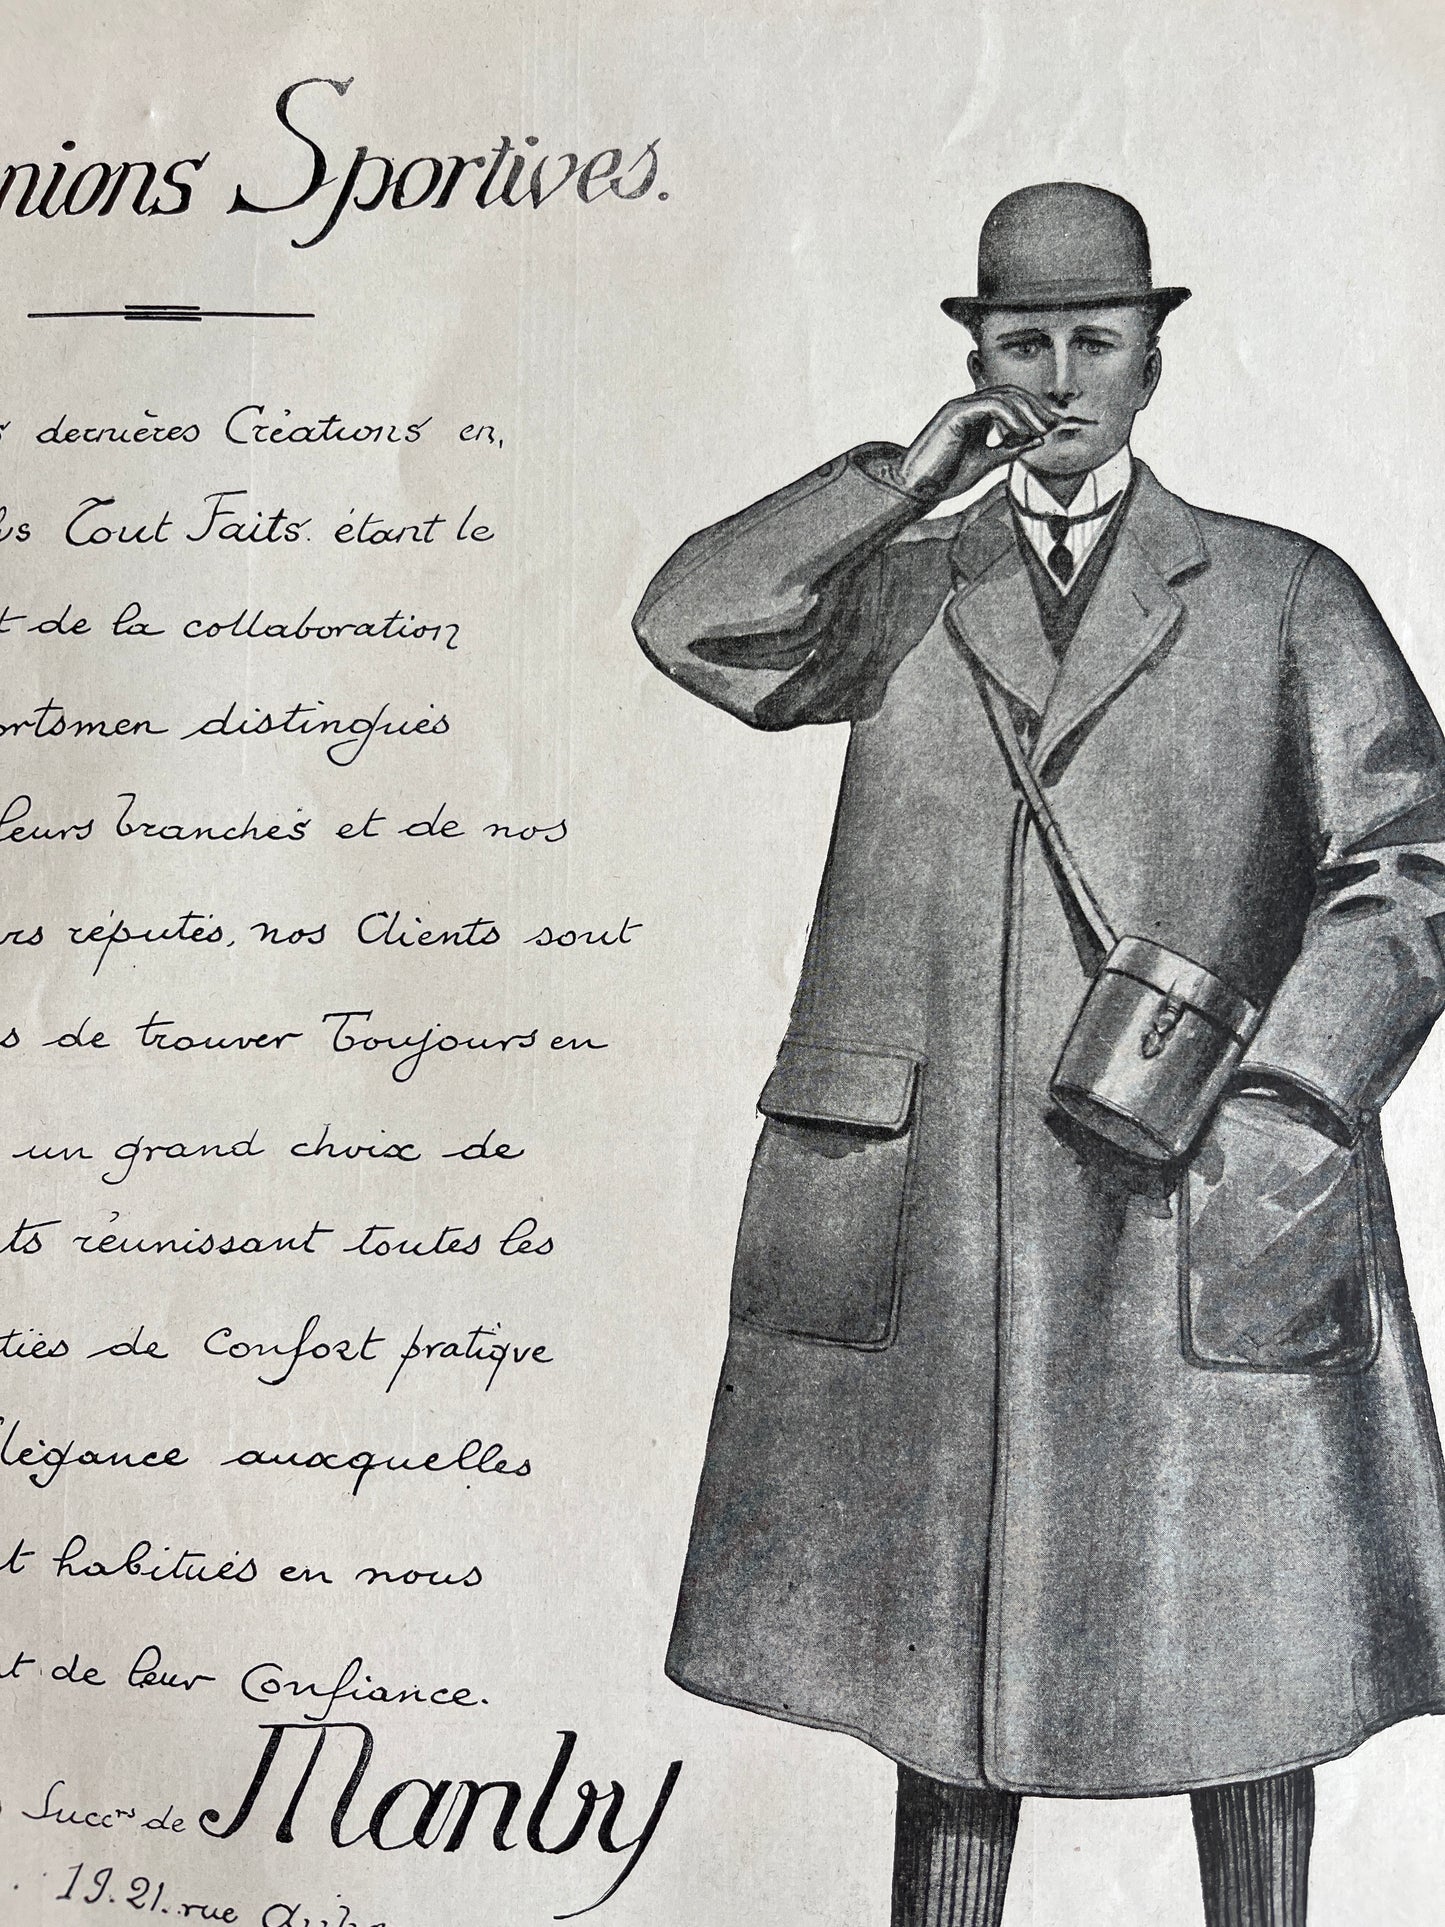 nions Sportives.
s dernières Créations en,
Tout Faits. étant le
t de la collaboration
ortsmen distingués
leurs branches et de nos
rs réputés, nos Clients sont
s de trouver Toujours en
un grand choix de
ts réunissant toutes les
tiés de Confort pratique
légance auxquelles
t habitués en nous
t de leur Confiance.
Succrs de Manby
19.21. rue